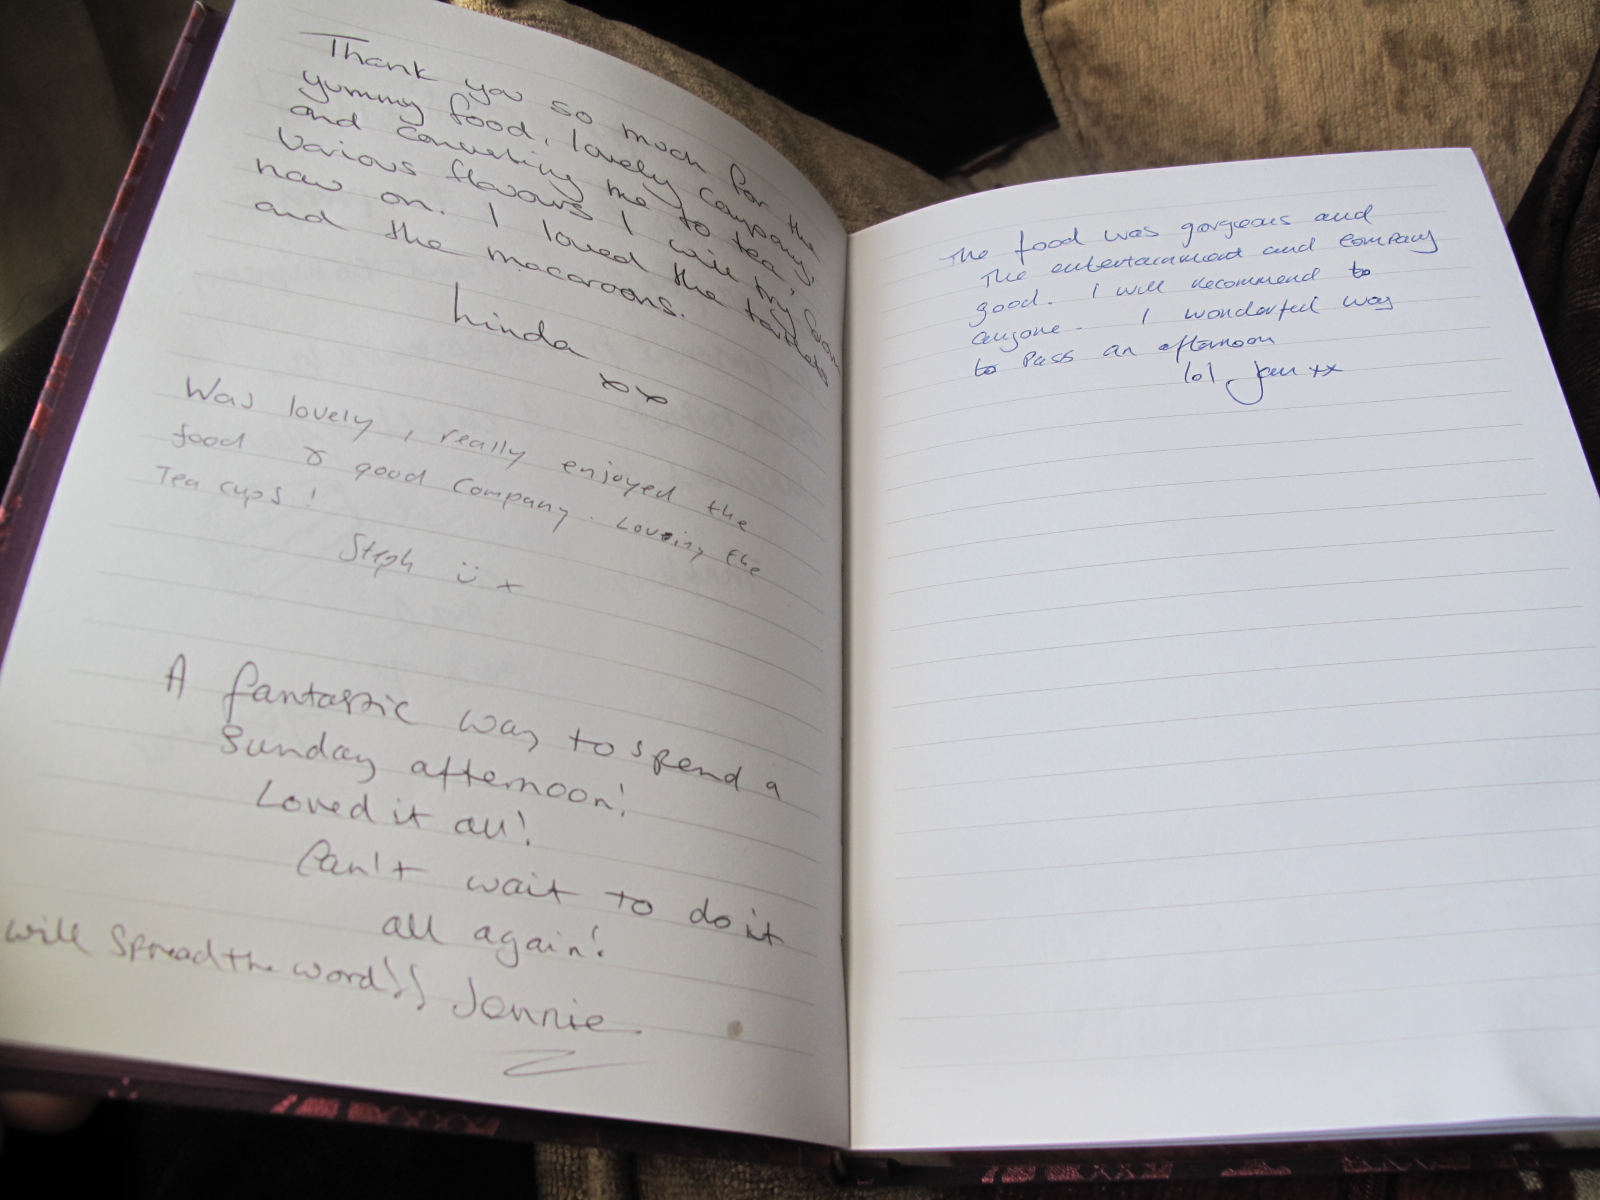 Thank you so much for the
yummy food, lovely company,
and converting me to tea!
Various flavours I will try from
now on. I loved the
and the macaroons.
Linda xx
Was lovely, really enjoyed the
food & good company. Loveing the
Tea cups!
Steph ü x
A fantastic way to spend a
Sunday afternoon!
Loved it all!
Can't wait to do it
all again!
will spread the word!! Jennie.
The food was gorgeous and
The entertainment and company
good. I will recommend to
anyone. I wonderful way
to Pass an afternoon
lol Jan xx